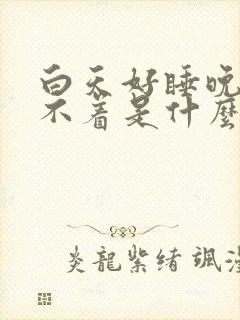 白天好睡晚
不着是什麼
炎龍紫緒 颯漫